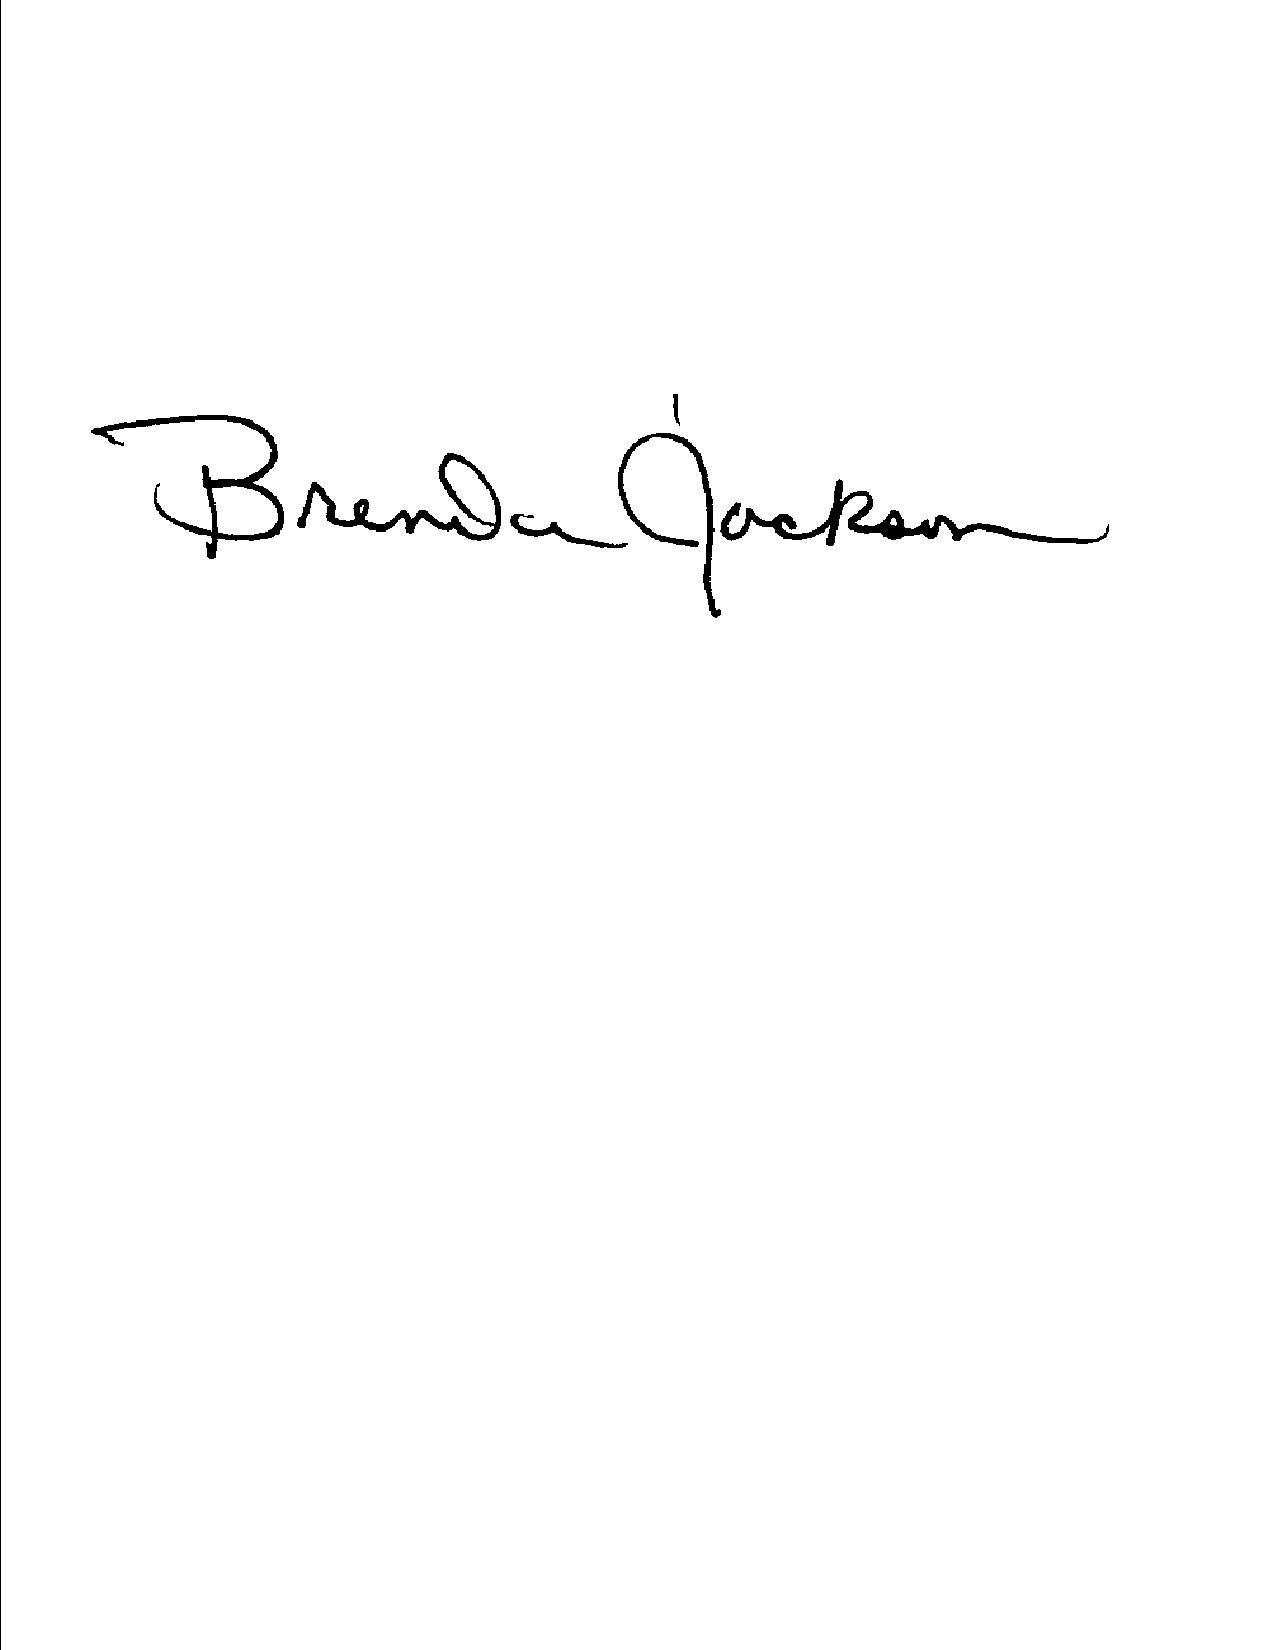 Brenda Jackson